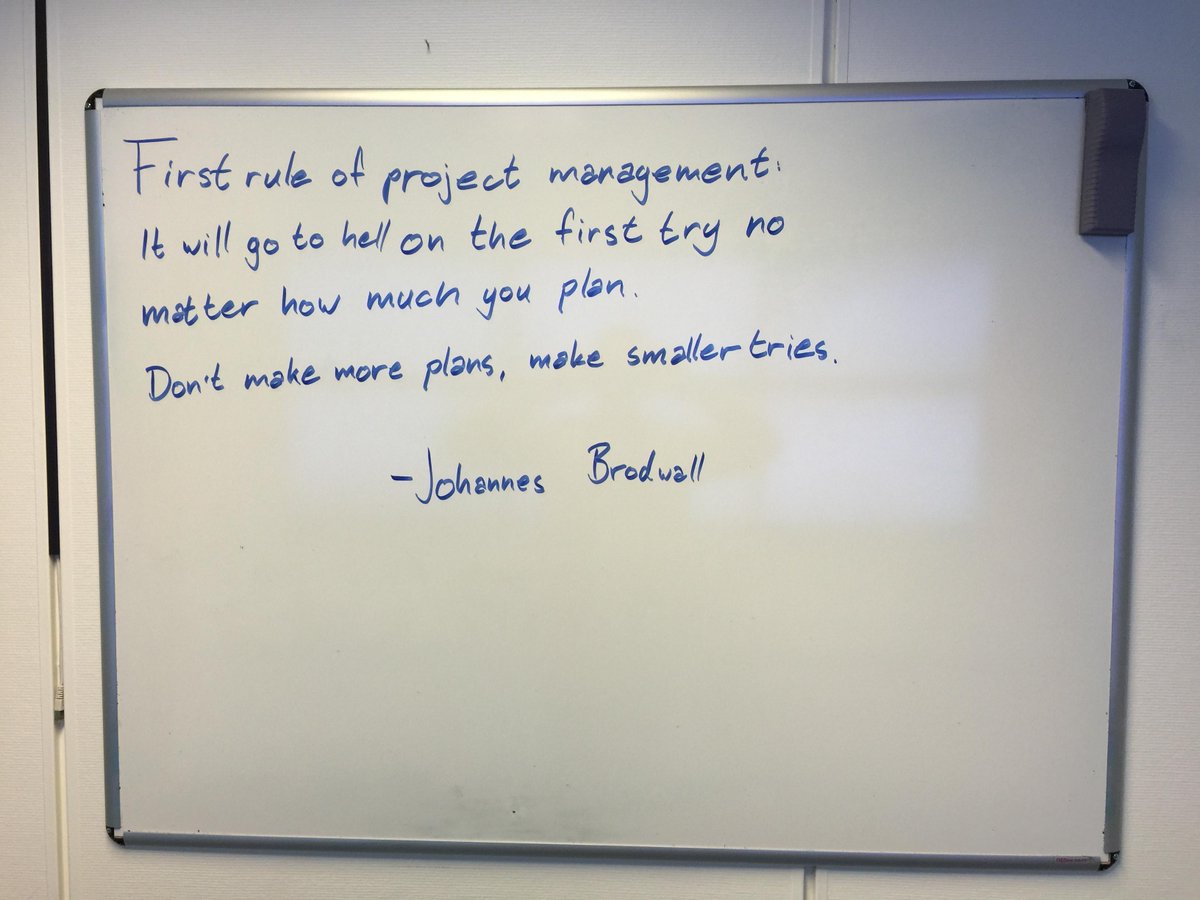 First rule of project management:
It will go to hell on the first try no
matter how much you plan.
Don't make more plans, make smaller tries.
-Johannes Brodwall